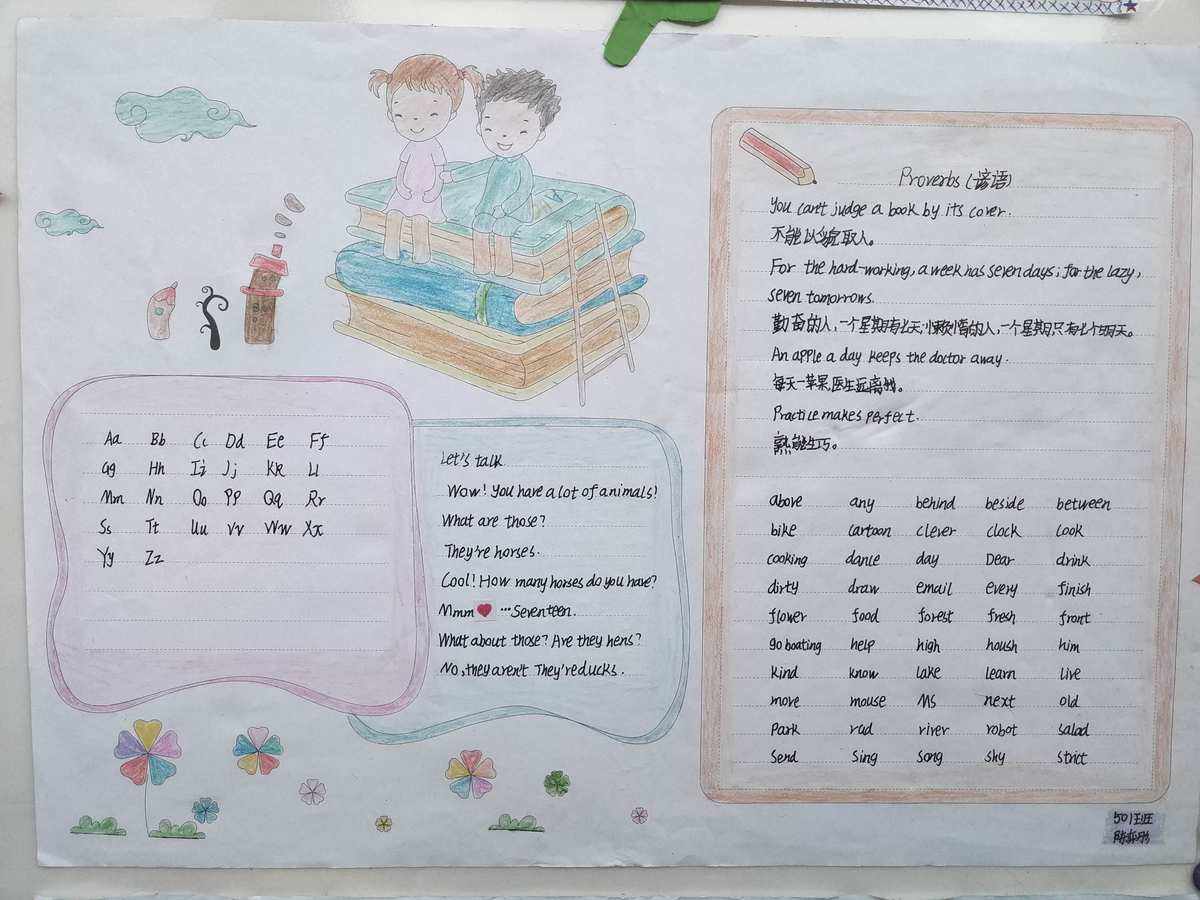 Aa Bb Cc Dd Ee Ff
Gg Hh Ii Jj Kk Ll
Mm Nn Oo Pp Qq Rr
Ss Tt Uu Vv Ww Xx
Yy Zz
Let's talk
Wow! You have a lot of animals!
What are those?
They're horses.
Cool! How many horses do you have?
Mmm ❤ ...Seventeen.
What about those? Are they hens?
No, they aren't They're ducks.
Proverbs (谚语)
You can't judge a book by its cover.
不能以貌取人。
For the hard-working, a week has seven days; for the lazy,
seven tomorrows.
勤奋的人,一个星期有七天;懒惰的人,一个星期只有七个明天。
An apple a day keeps the doctor away.
每天一苹果,医生远离我。
Practice makes perfect.
熟能生巧。
above any behind beside between
bike cartoon clever clock cook
cooking dance day Dear drink
dirty draw email every finish
flower food forest fresh front
go boating help high housh him
kind know lake learn live
move mouse Ms next old
Park rad river robot salad
send sing song shy strict
501班
陈